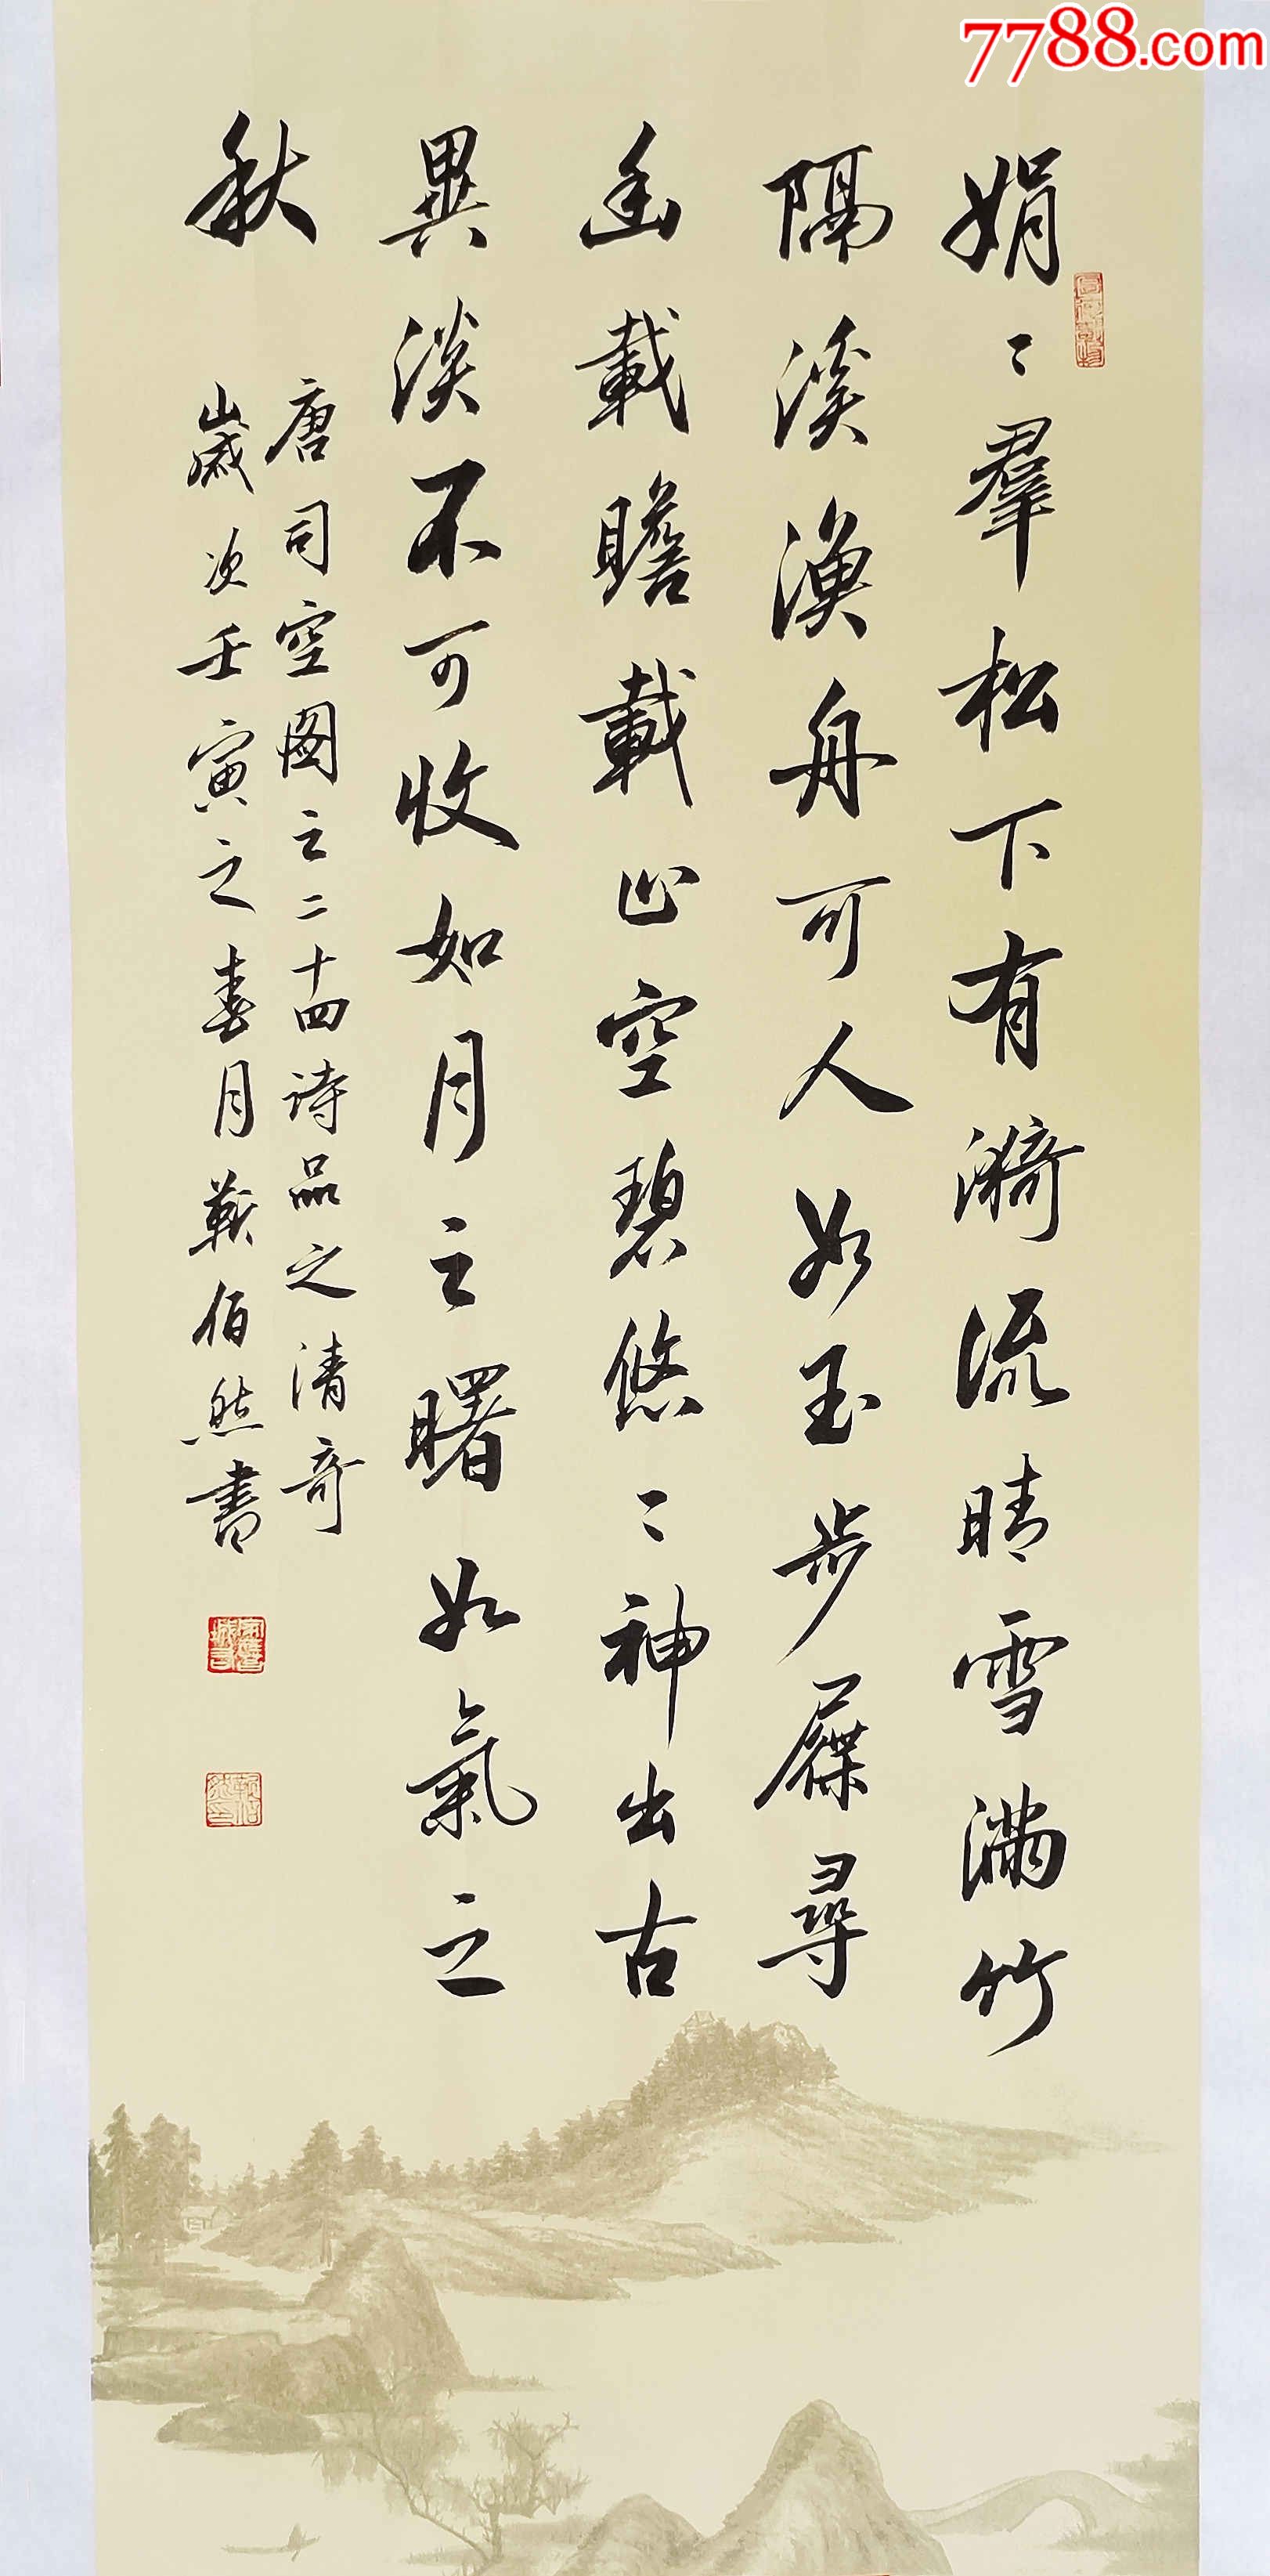 7788.com
娟〻羣松下有漪流晴雪满竹
隔溪漁舟可人如玉步屧尋
幽載瞻載止空碧悠〻神出古
異淡不可收如月之曙如氣之
秋
唐司空图之二十四诗品之清奇
歲次壬寅之春月靳佰然書